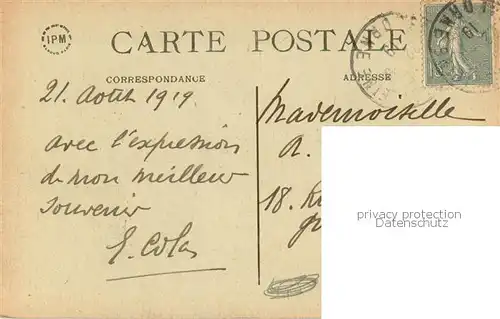 IPM
CARTE POSTALE
CORRESPONDANCE
ADRESSE
ORNE
21. Août 1919
avec l'expression
de mon meilleur
souvenir
E. Colas
Mademoiselle
A.
18. R
privacy protection
Datenschutz